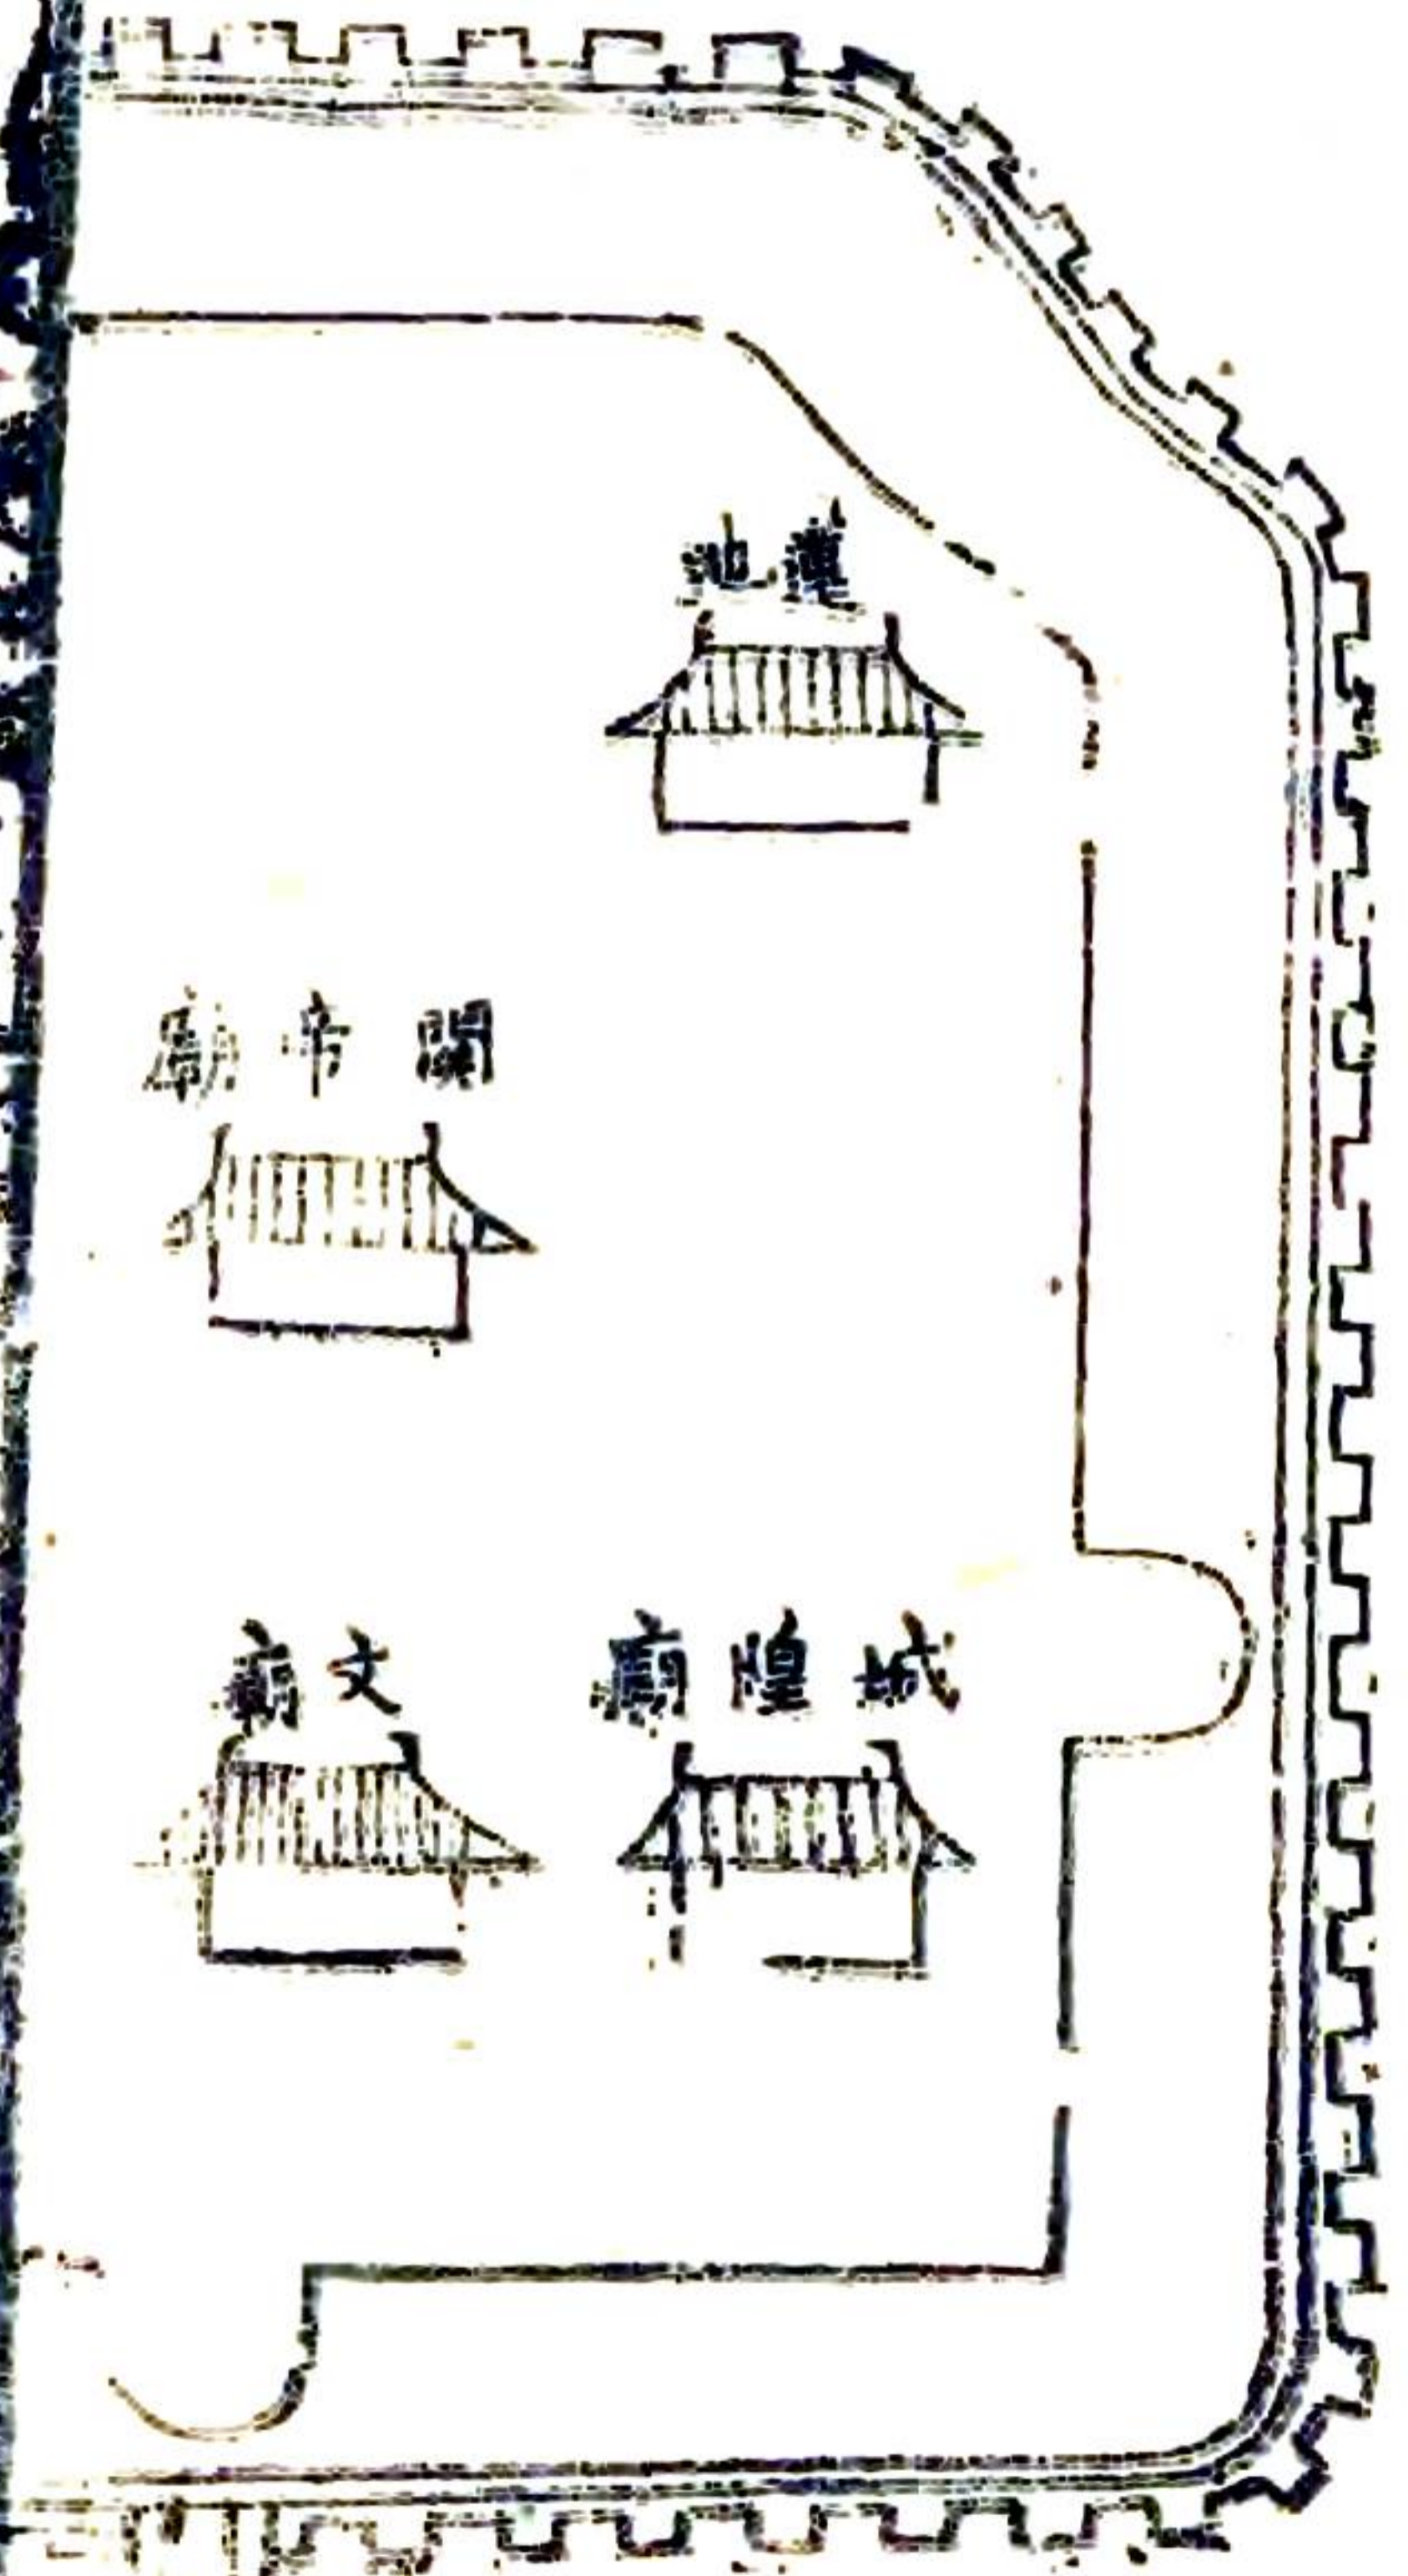 蓮池
關帝廟
城隍廟
文廟